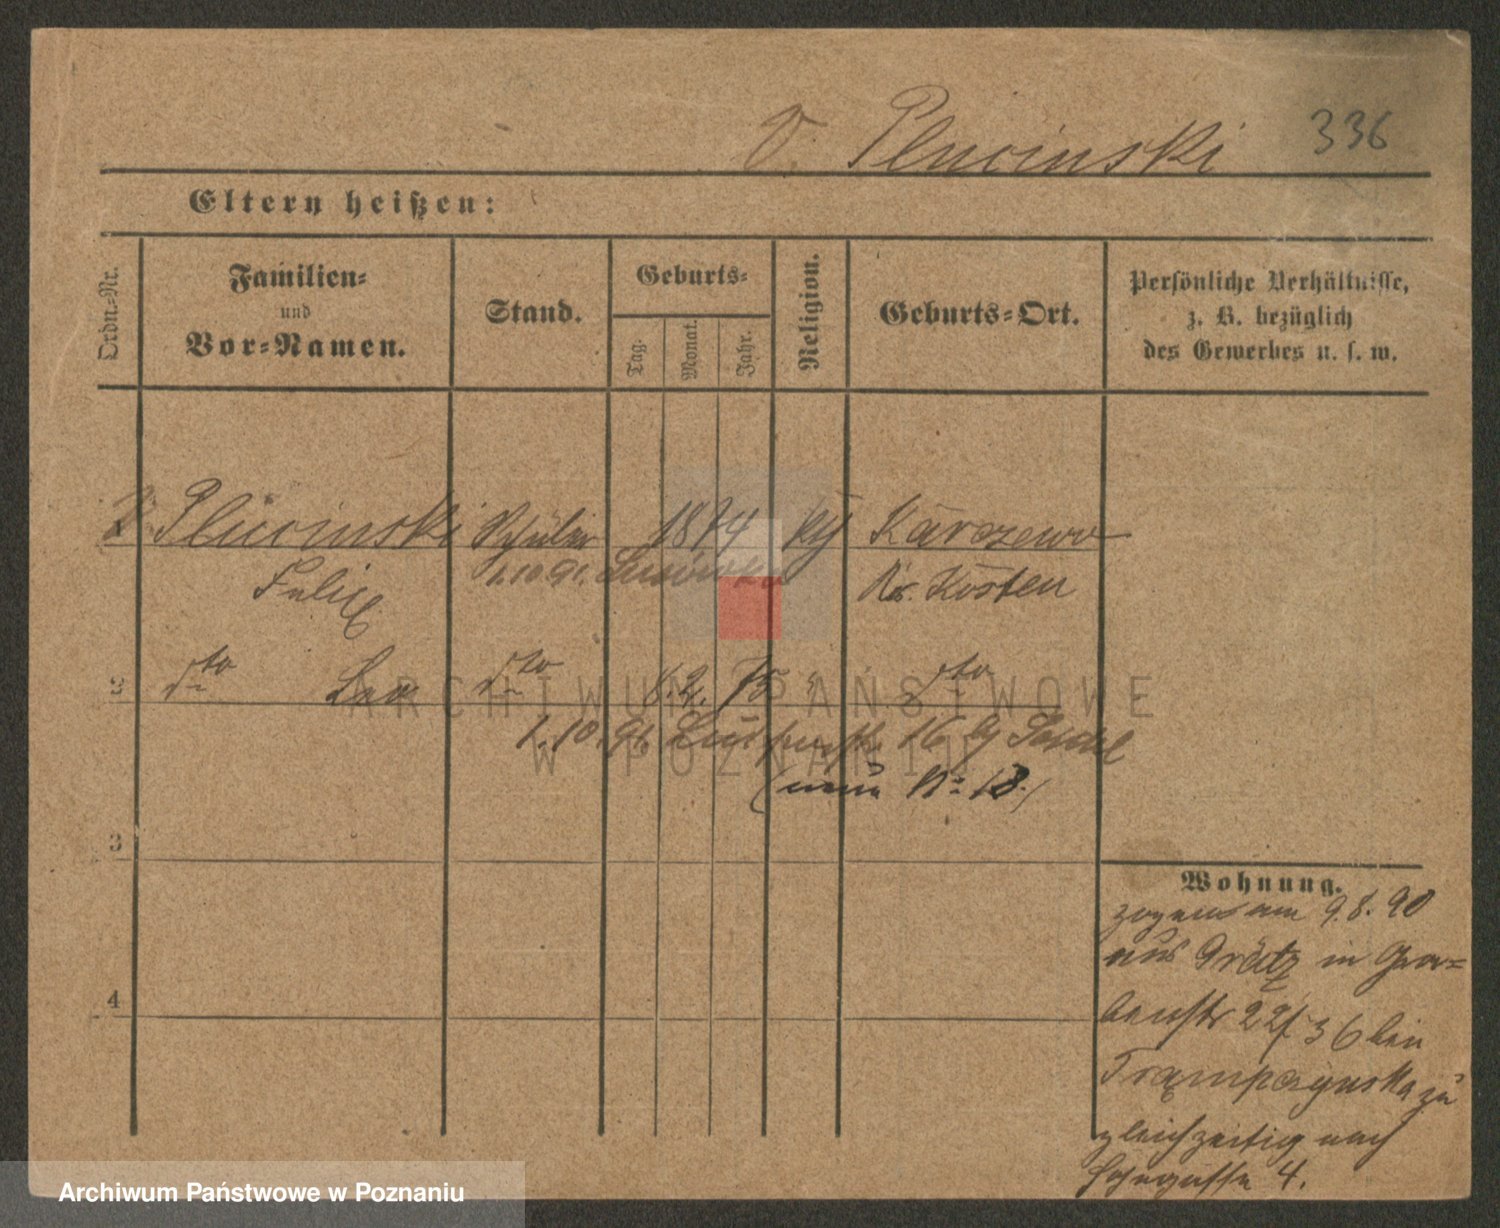 v. Plucinski 336
Eltern heißen:
Ordn.-Nr.
Familien-
und
Vor-Namen.
Stand.
Geburts-
Tag.
Monat.
Jahr.
Religion.
Geburts-Ort.
Persönliche Verhältnisse,
z. B. bezüglich
des Gewerbes u. s. w.
v. Plucinski Schüler 1874 kth Karczewo
Felix 1.10.91. Kr. Kosten
2 dto Leo dto 6.2. 75 " dto
1.10.91. 16 b/
(neue No 18.)
3
4
Wohnung.
zogen am 9.8.90
aus Grätz in Gra-
benstr 22/36 bei
Trąmpczynska zu
gleichzeitig nach
4.
ARCHIWUM PAŃSTWOWE
W POZNANIU
Archiwum Państwowe w Poznaniu